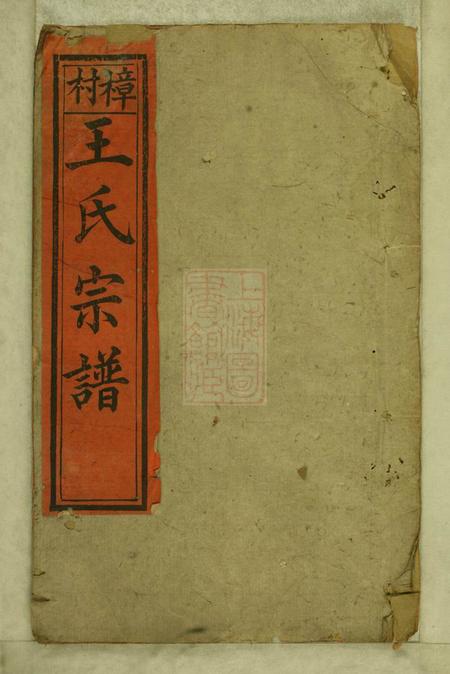 樟村
王氏宗譜
上海圖
書館藏